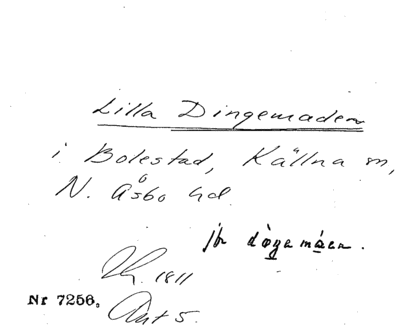 Lilla Dingemaden
i Bolestad, Källna sn,
N. Åsbo hd.
jfr
1811
Nr 7256. Akt 5.